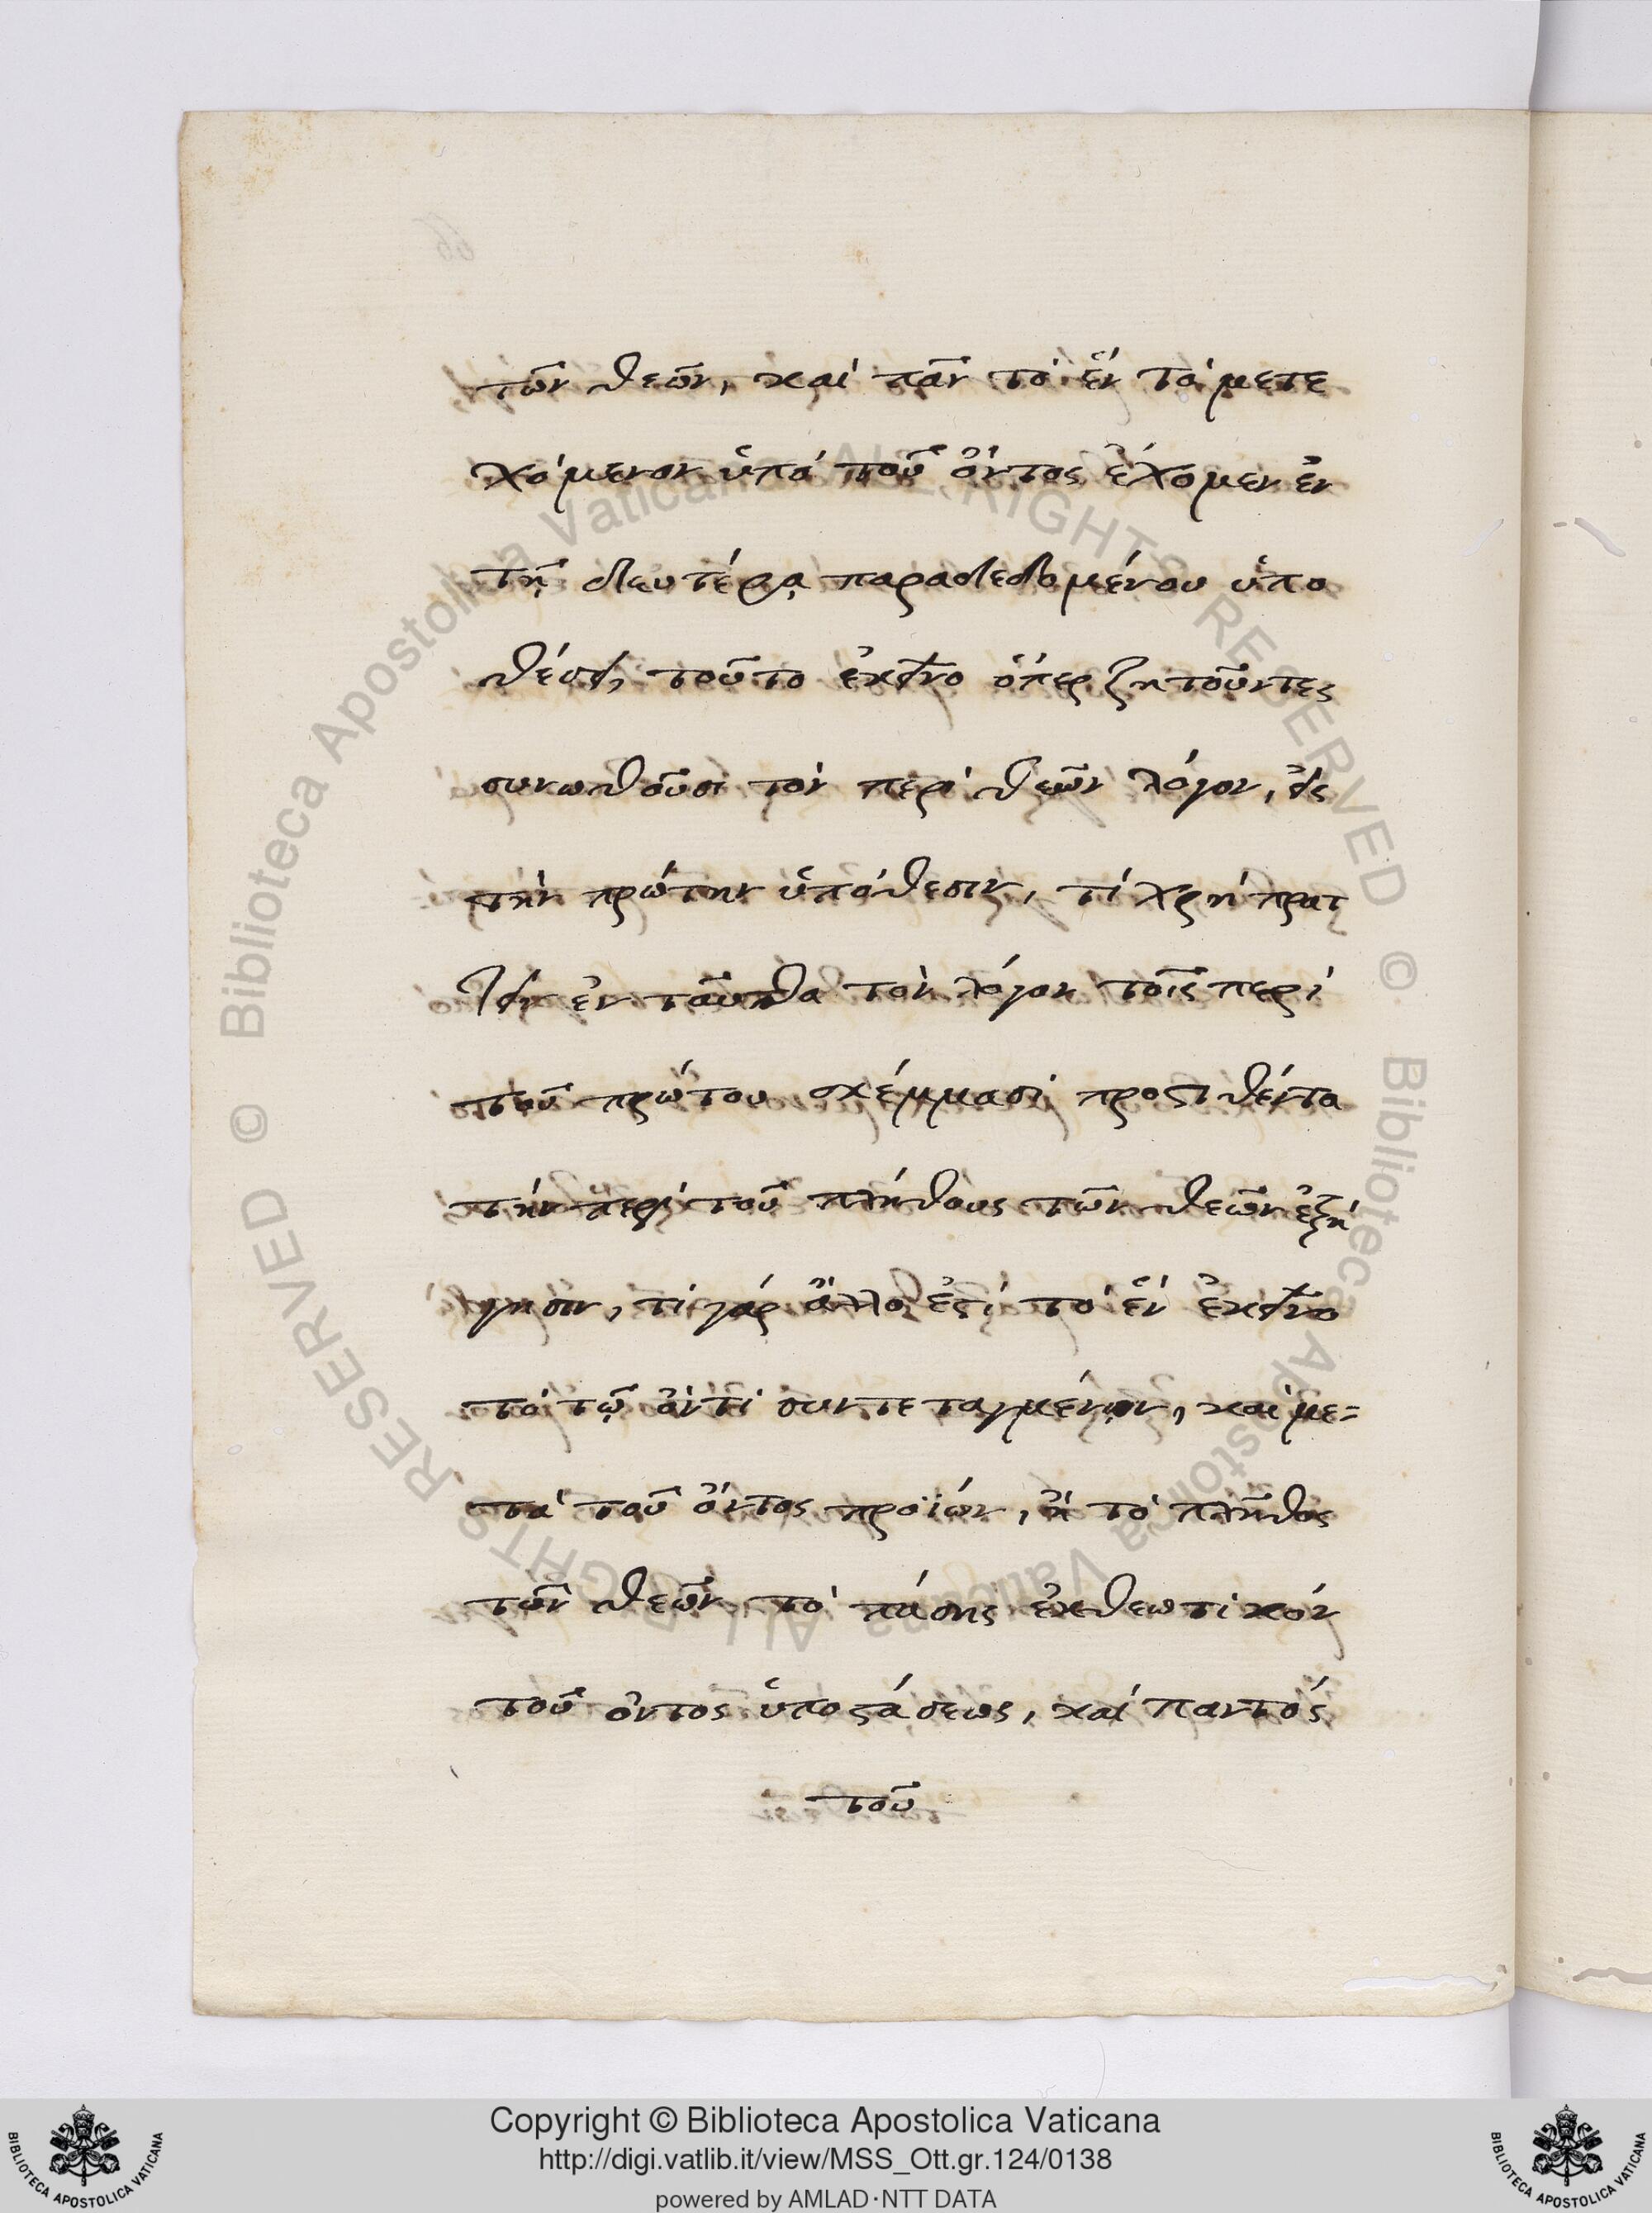 τῶν θεῶν, καὶ πᾶν τὸ ἓν τὸ μετε
χόμενον ὑπὸ τοῦ ὄντος ἔχομεν ἐν
τῇ δευτέρᾳ παραδεδομένου ὑπο
θέσει, τοῦτο ἐκεῖνο ὅπερ ζητοῦντες
συνωθοῦσι τὸν περὶ θεῶν λόγον, εἰς
τὴν πρώτην ὑπόθεσιν, τί χρὴ πρατ
τειν ἐν ταῦθα τὸν λόγον τοῖς περὶ
τοῦ πρώτου σκέμμασι προστιθέντα
τὴν περὶ τοῦ πλήθους τῶν θεῶν ἐξή
γησιν, τί γάρ ἄλλο ἐστί τὸ ἓν ἐκεῖνο
τὸ τῷ ὄντι συντεταγμένον, καὶ με=
τὰ τοῦ ὄντος προϊών, ἢ τὸ πλῆθος
τῶν θεῶν, τὸ πάσης ἐκθεωτικόν
τοῦ ὄντος ὑποστάσεως, καὶ παντός
τοῦ
© Biblioteca Apostolica Vaticana ALL RIGHTS RESERVED
© Biblioteca Apostolica Vaticana ALL RIGHTS RESERVED
Copyright © Biblioteca Apostolica Vaticana
http://digi.vatlib.it/view/MSS_Ott.gr.124/0138
powered by AMLAD·NTT DATA
BIBLIOTECA APOSTOLICA VATICANA
BIBLIOTECA APOSTOLICA VATICANA